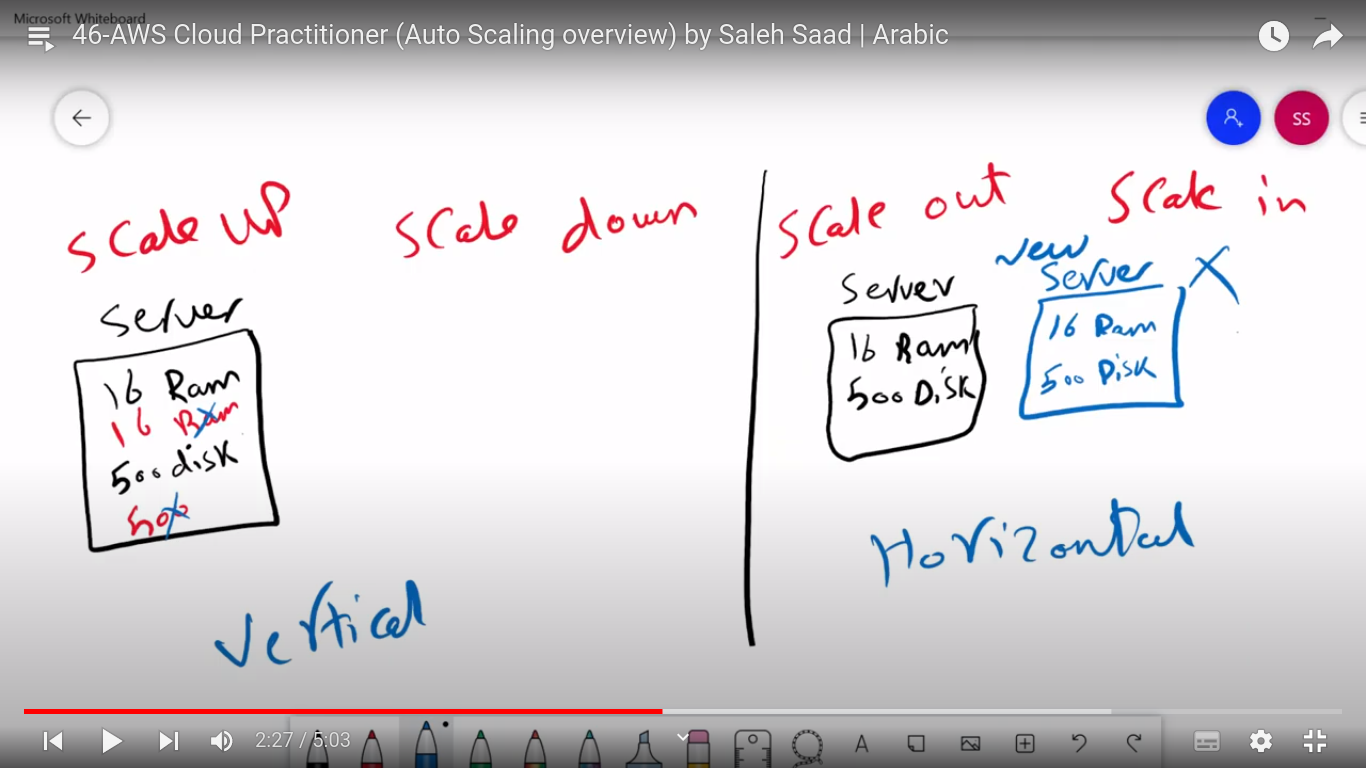 Microsoft Whiteboard
46-AWS Cloud Practitioner (Auto Scaling overview) by Saleh Saad | Arabic
SS
Scale UP
Scale down
Server
16 Ram
16 Ram
500 disk
500
Vertical
Scale out
Scale in
Server
16 Ram
500 Disk
New
Server
X
16 Ram
500 Disk
Horizontal
2:27 / 5:03
A